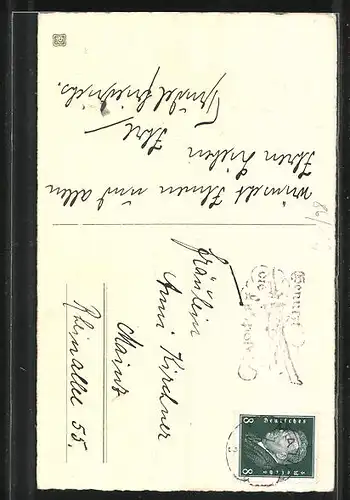 wünscht Ihnen und allen
Ihren Lieben
Ihre
Friedrichs.
Fräulein
Anni Kirchner
Mainz
Rheinallee 55.
Benutzt
die
8 Deutsches 8
Reich